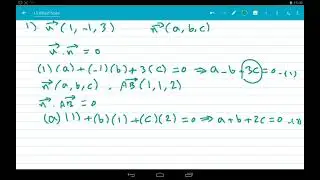 1) n⃗ (1, -1, 3) n⃗ (a, b, c)
n⃗ . n⃗ = 0
(1)(a) + (-1)(b) + 3(c) = 0 ⇒ a-b+3c=0 -(1)
n⃗ (a, b, c) . AB⃗ (1, 1, 2)
n⃗ . AB⃗ = 0
(a)(1) + (b)(1) + (c)(2) = 0 ⇒ a+b+2c=0 -(2)